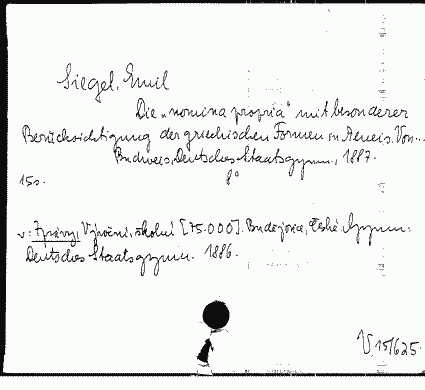 Siegel, Emil
Die „nomina propria“ mit besonderer
Berücksichtigung der griechischen Formen in Aeneis. Von...
Budweis, Deutsches Staatsgymn., 1887.
15s. 8°
v: Zprávy, Výroční, školní [75.000]. Budějovice, České Gymn.
Deutsches Staatsgymn. 1886.
V 15/625.